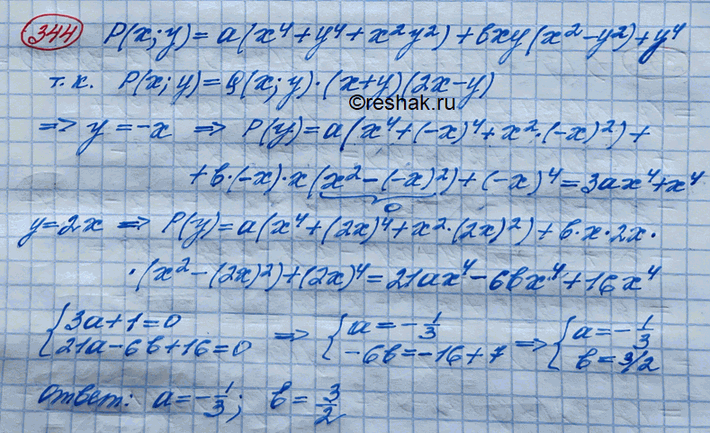 344 P(x; y) = a(x⁴+y⁴+x²y²)+bxy(x²-y²)+y⁴
т.к. P(x; y) = Q(x; y)·(x+y)(2x-y)
©reshak.ru
⇒ y=-x ⇒ P(y)=a(x⁴+(-x)⁴+x²·(-x)²)+
+b·(-x)·x(x²-(-x)²)+(-x)⁴=3ax⁴+x⁴
0
y=2x ⇒ P(y)=a(x⁴+(2x)⁴+x²·(2x)²)+b·x·2x·
·(x²-(2x)²)+(2x)⁴=21ax⁴-6bx⁴+16x⁴
{3a+1=0 ⇒ {a=-1/3 ⇒ {a=-1/3
{21a-6b+16=0 {-6b=-16+7 {b=3/2
Ответ: a=-1/3; b=3/2